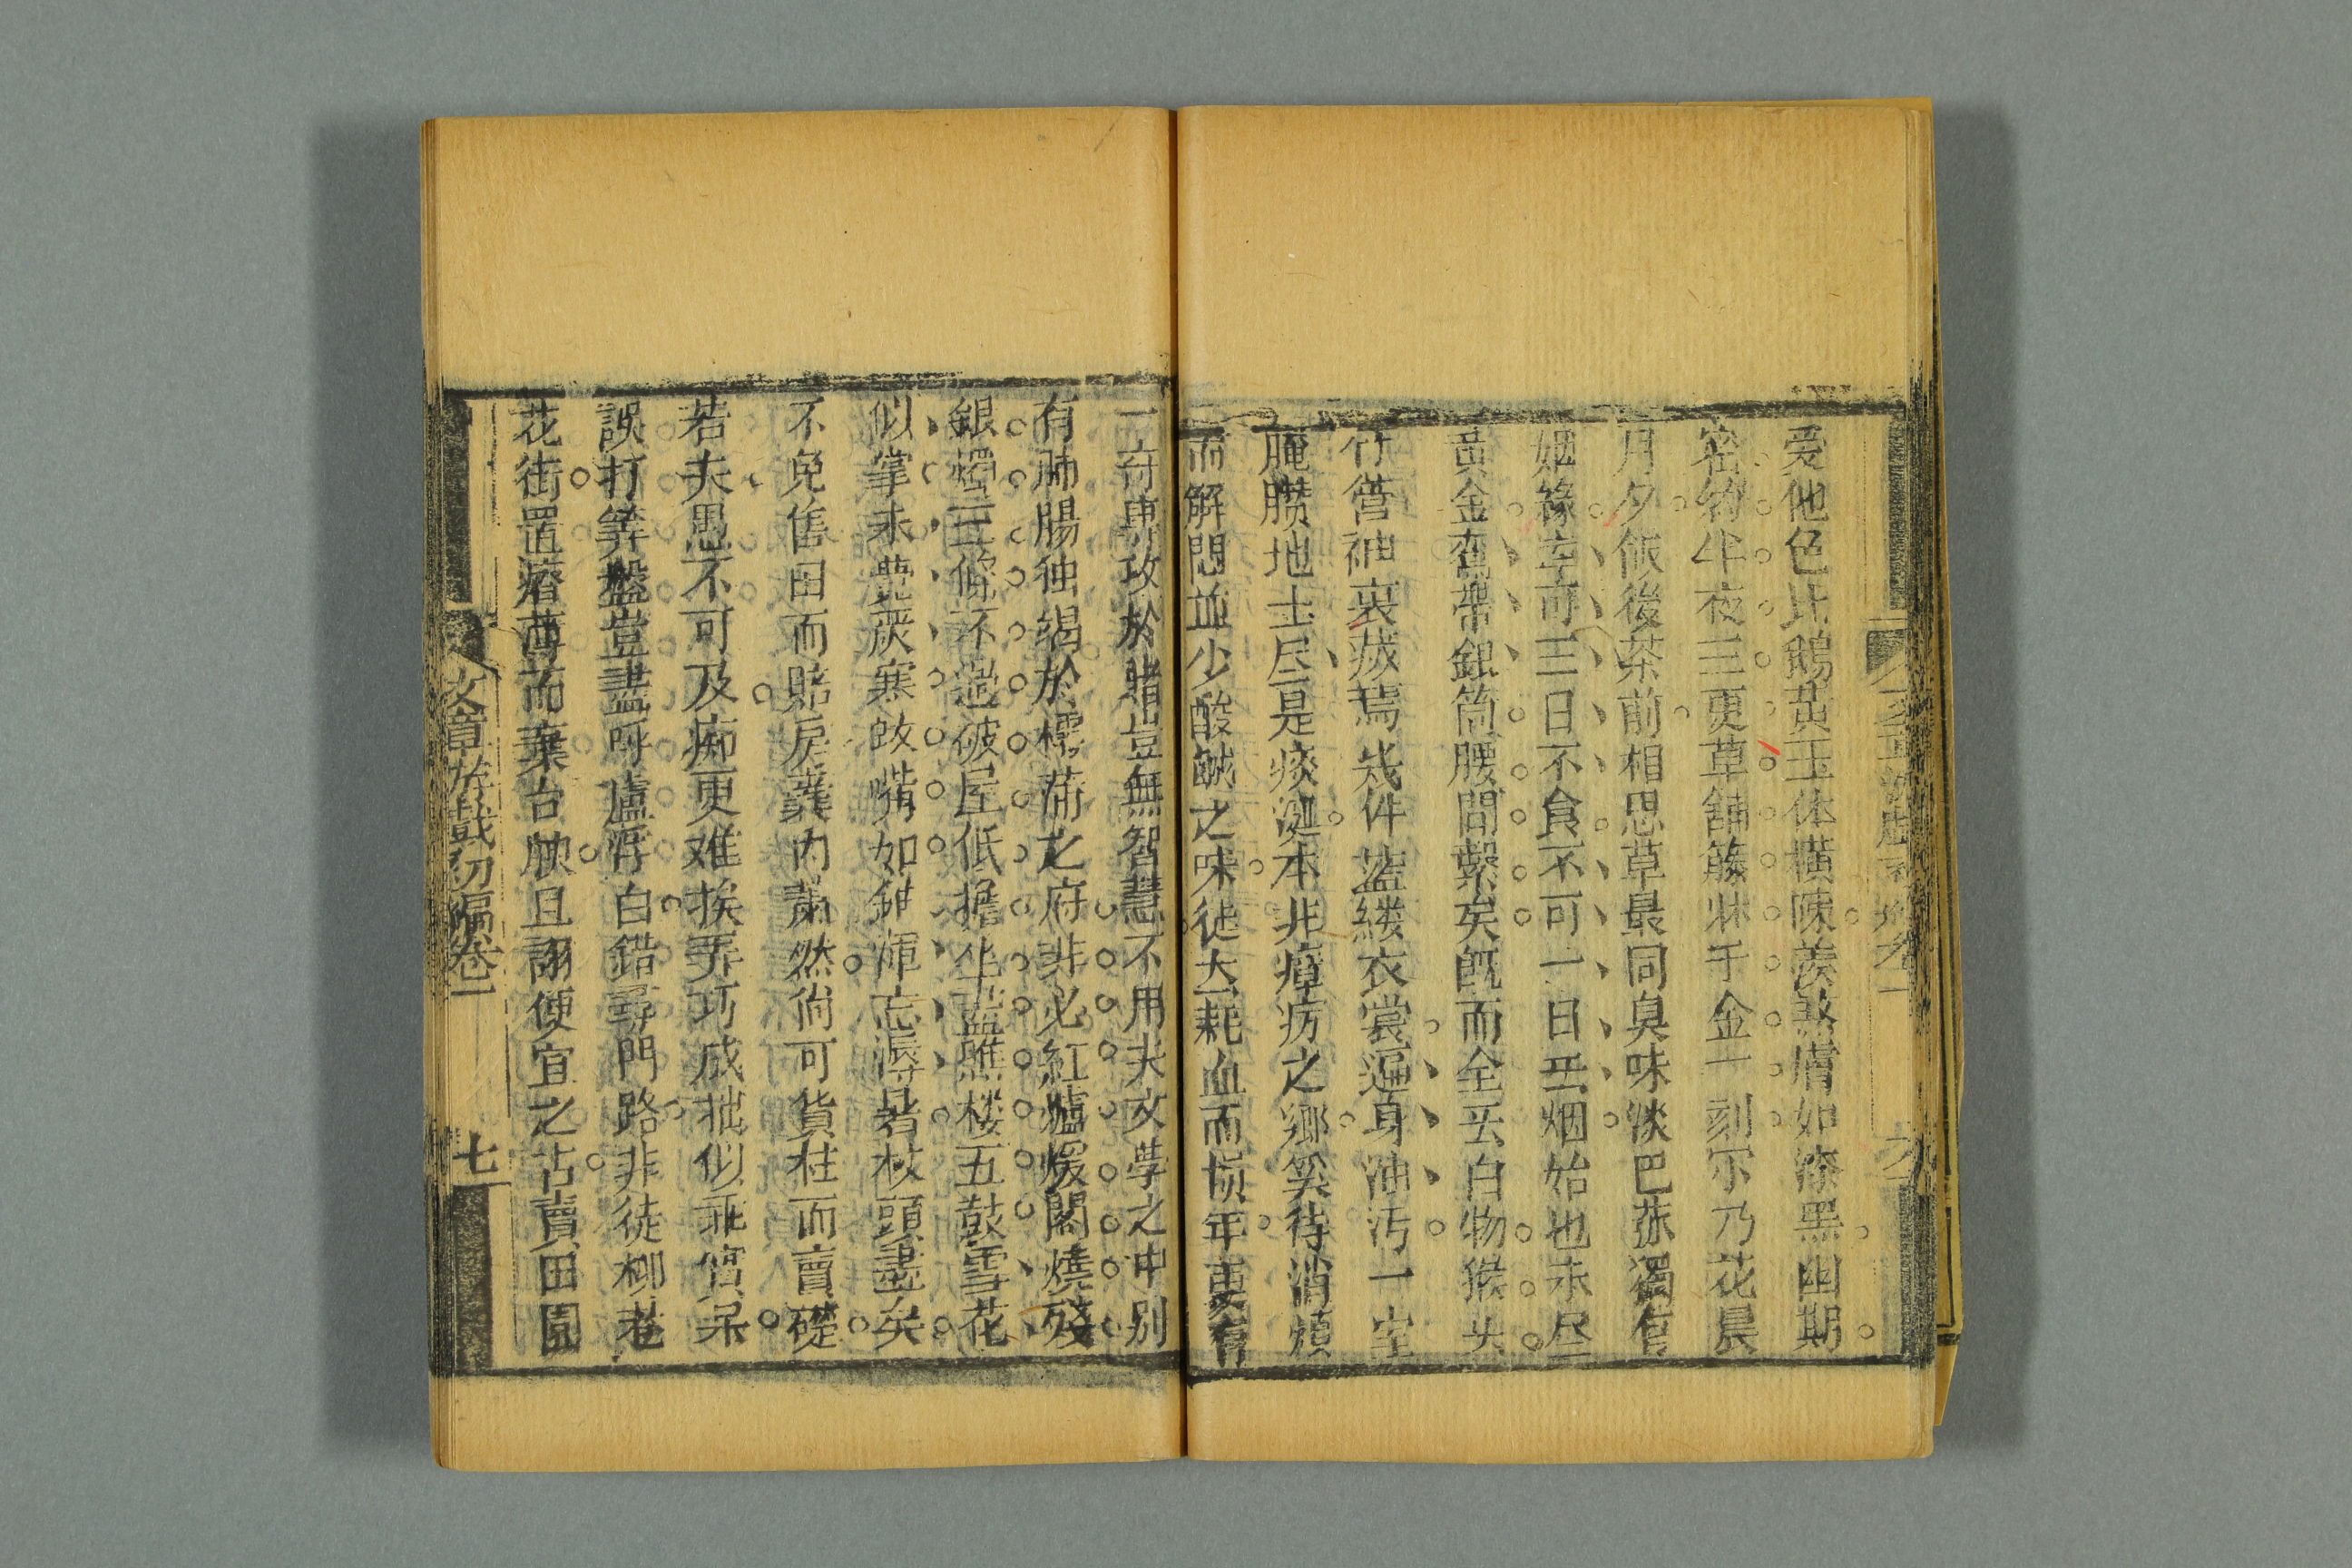 爱他色比鵝黄玉体橫陳羨煞膚如漆黑幽期
密約半夜三更草舖籐牀千金一刻尔乃花晨
月夕飯後茶前相思草最同臭味淡巴菰獨有
姻緣幸可三日不食不可一日旡烟始也未尽
黄金舊帶銀筒腰間繫矣既而全旡白物猴头
竹管袖裏藏焉幾件藍縷衣裳遍身油污一室
腌臢地土尽是痰涎本非瘴疠之鄉奚待消煩
而解悶並少酸鹹之味徒大耗血而损年更有
一竒專攻於賭豈無智慧不用夫文學之中别
有肺腸独縕於樗蒲之府非必紅爐煖閣燒殘
銀燭三條不過破屋低擔坐盡譙楼五鼓雪花
似掌未覺衾寒蚊嘴如錐渾忘漏暑杖頭盡矣
不免售田而賠房囊内蕭然尚可貨柱而賣礎
若夫愚不可及痴更难挨弄巧成拙似乖實呆
誤打筭盤豈盡呼盧浮白錯尋門路非徒柳巷
花街置瘠薄而棄台腴且詡便宜之占賣田園
文章游戲初編卷一 七